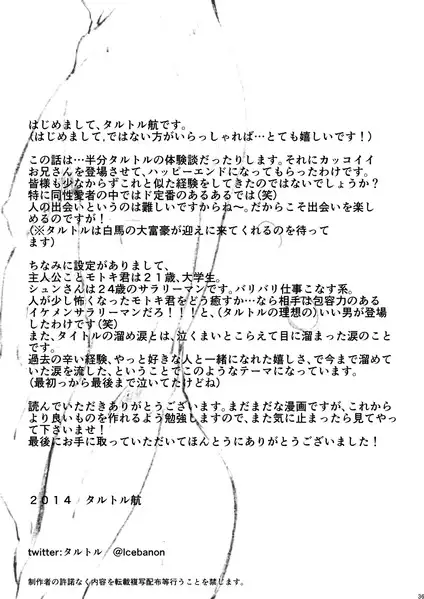 はじめまして、タルトル航です。
(はじめまして,ではない方がいらっしゃれば…とても嬉しいです!)
この話は…半分タルトルの体験談だったりします。それにカッコイイ
お兄さんを登場させて、ハッピーエンドになってもらったわけです。
皆様も少なからずこれと似た経験をしてきたのではないでしょうか?
特に同性愛者の中ではド定番のあるあるでは(笑)
人の出会いというのは難しいですからね~。だからこそ出会いを楽し
めるのですが!
(※タルトルは白馬の大富豪が迎えに来てくれるのを待って
ます)
ちなみに設定がありまして、
主人公ことモトキ君は21歳、大学生。
シュンさんは24歳のサラリーマンです。バリバリ仕事こなす系。
人が少し怖くなったモトキ君をどう癒すか…なら相手は包容力のある
イケメンサラリーマンだろ!!!と、(タルトルの理想の)いい男が登場
したわけです(笑)
また、タイトルの溜め涙とは、泣くまいとこらえて目に溜まった涙のこと
です。
過去の辛い経験、やっと好きな人と一緒になれた嬉しさ、で今まで溜めて
いた涙を流した、ということでこのようなテーマになっています。
(最初っから最後まで泣いてたけどね)
読んでいただきありがとうございます。まだまだな漫画ですが、これから
より良いものを作れるよう勉強しますので、また気に止まったら見てやっ
て下さいませ!
最後にお手に取っていただいてほんとうにありがとうございました!
2014 タルトル航
twitter:タルトル @Icebanon
制作者の許諾なく内容を転載複写配布等行うことを禁じます。
36